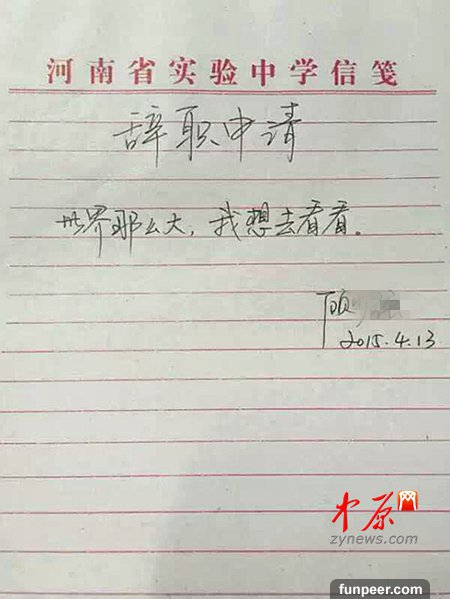 河南省实验中学信笺
辞职申请
世界那么大，我想去看看。
顾
2015.4.13
中原网
zynews.com
funpeer.com